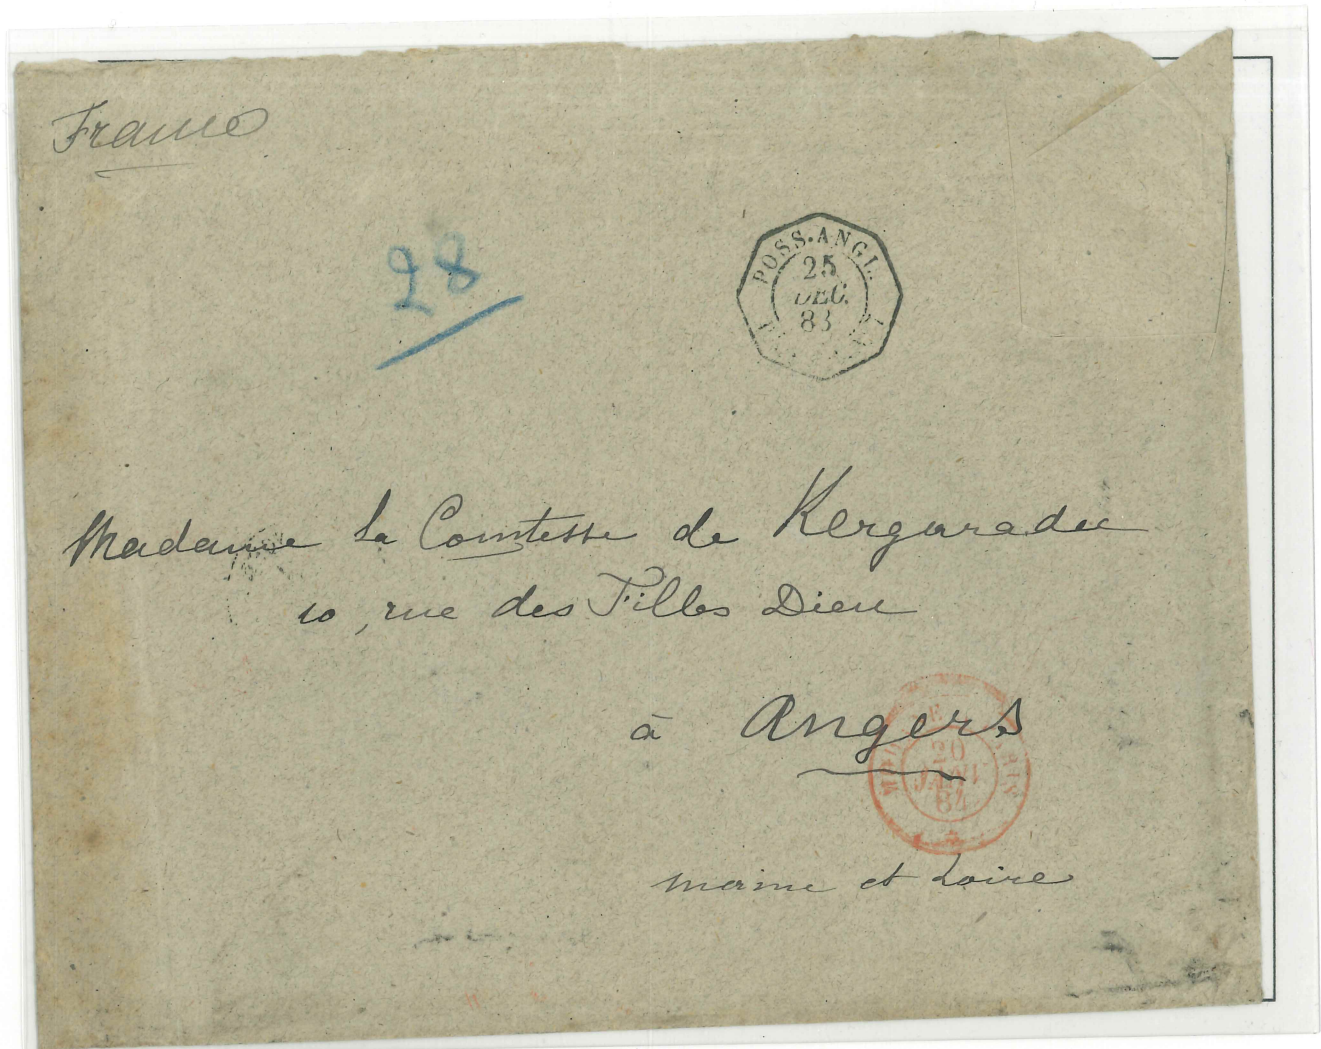 France
28
POSS. ANGL.
25
DEC.
83
Madame la Comtesse de Kergaradec
10, rue des Filles Dieu
à Angers
20
JANV
84
maine et Loire